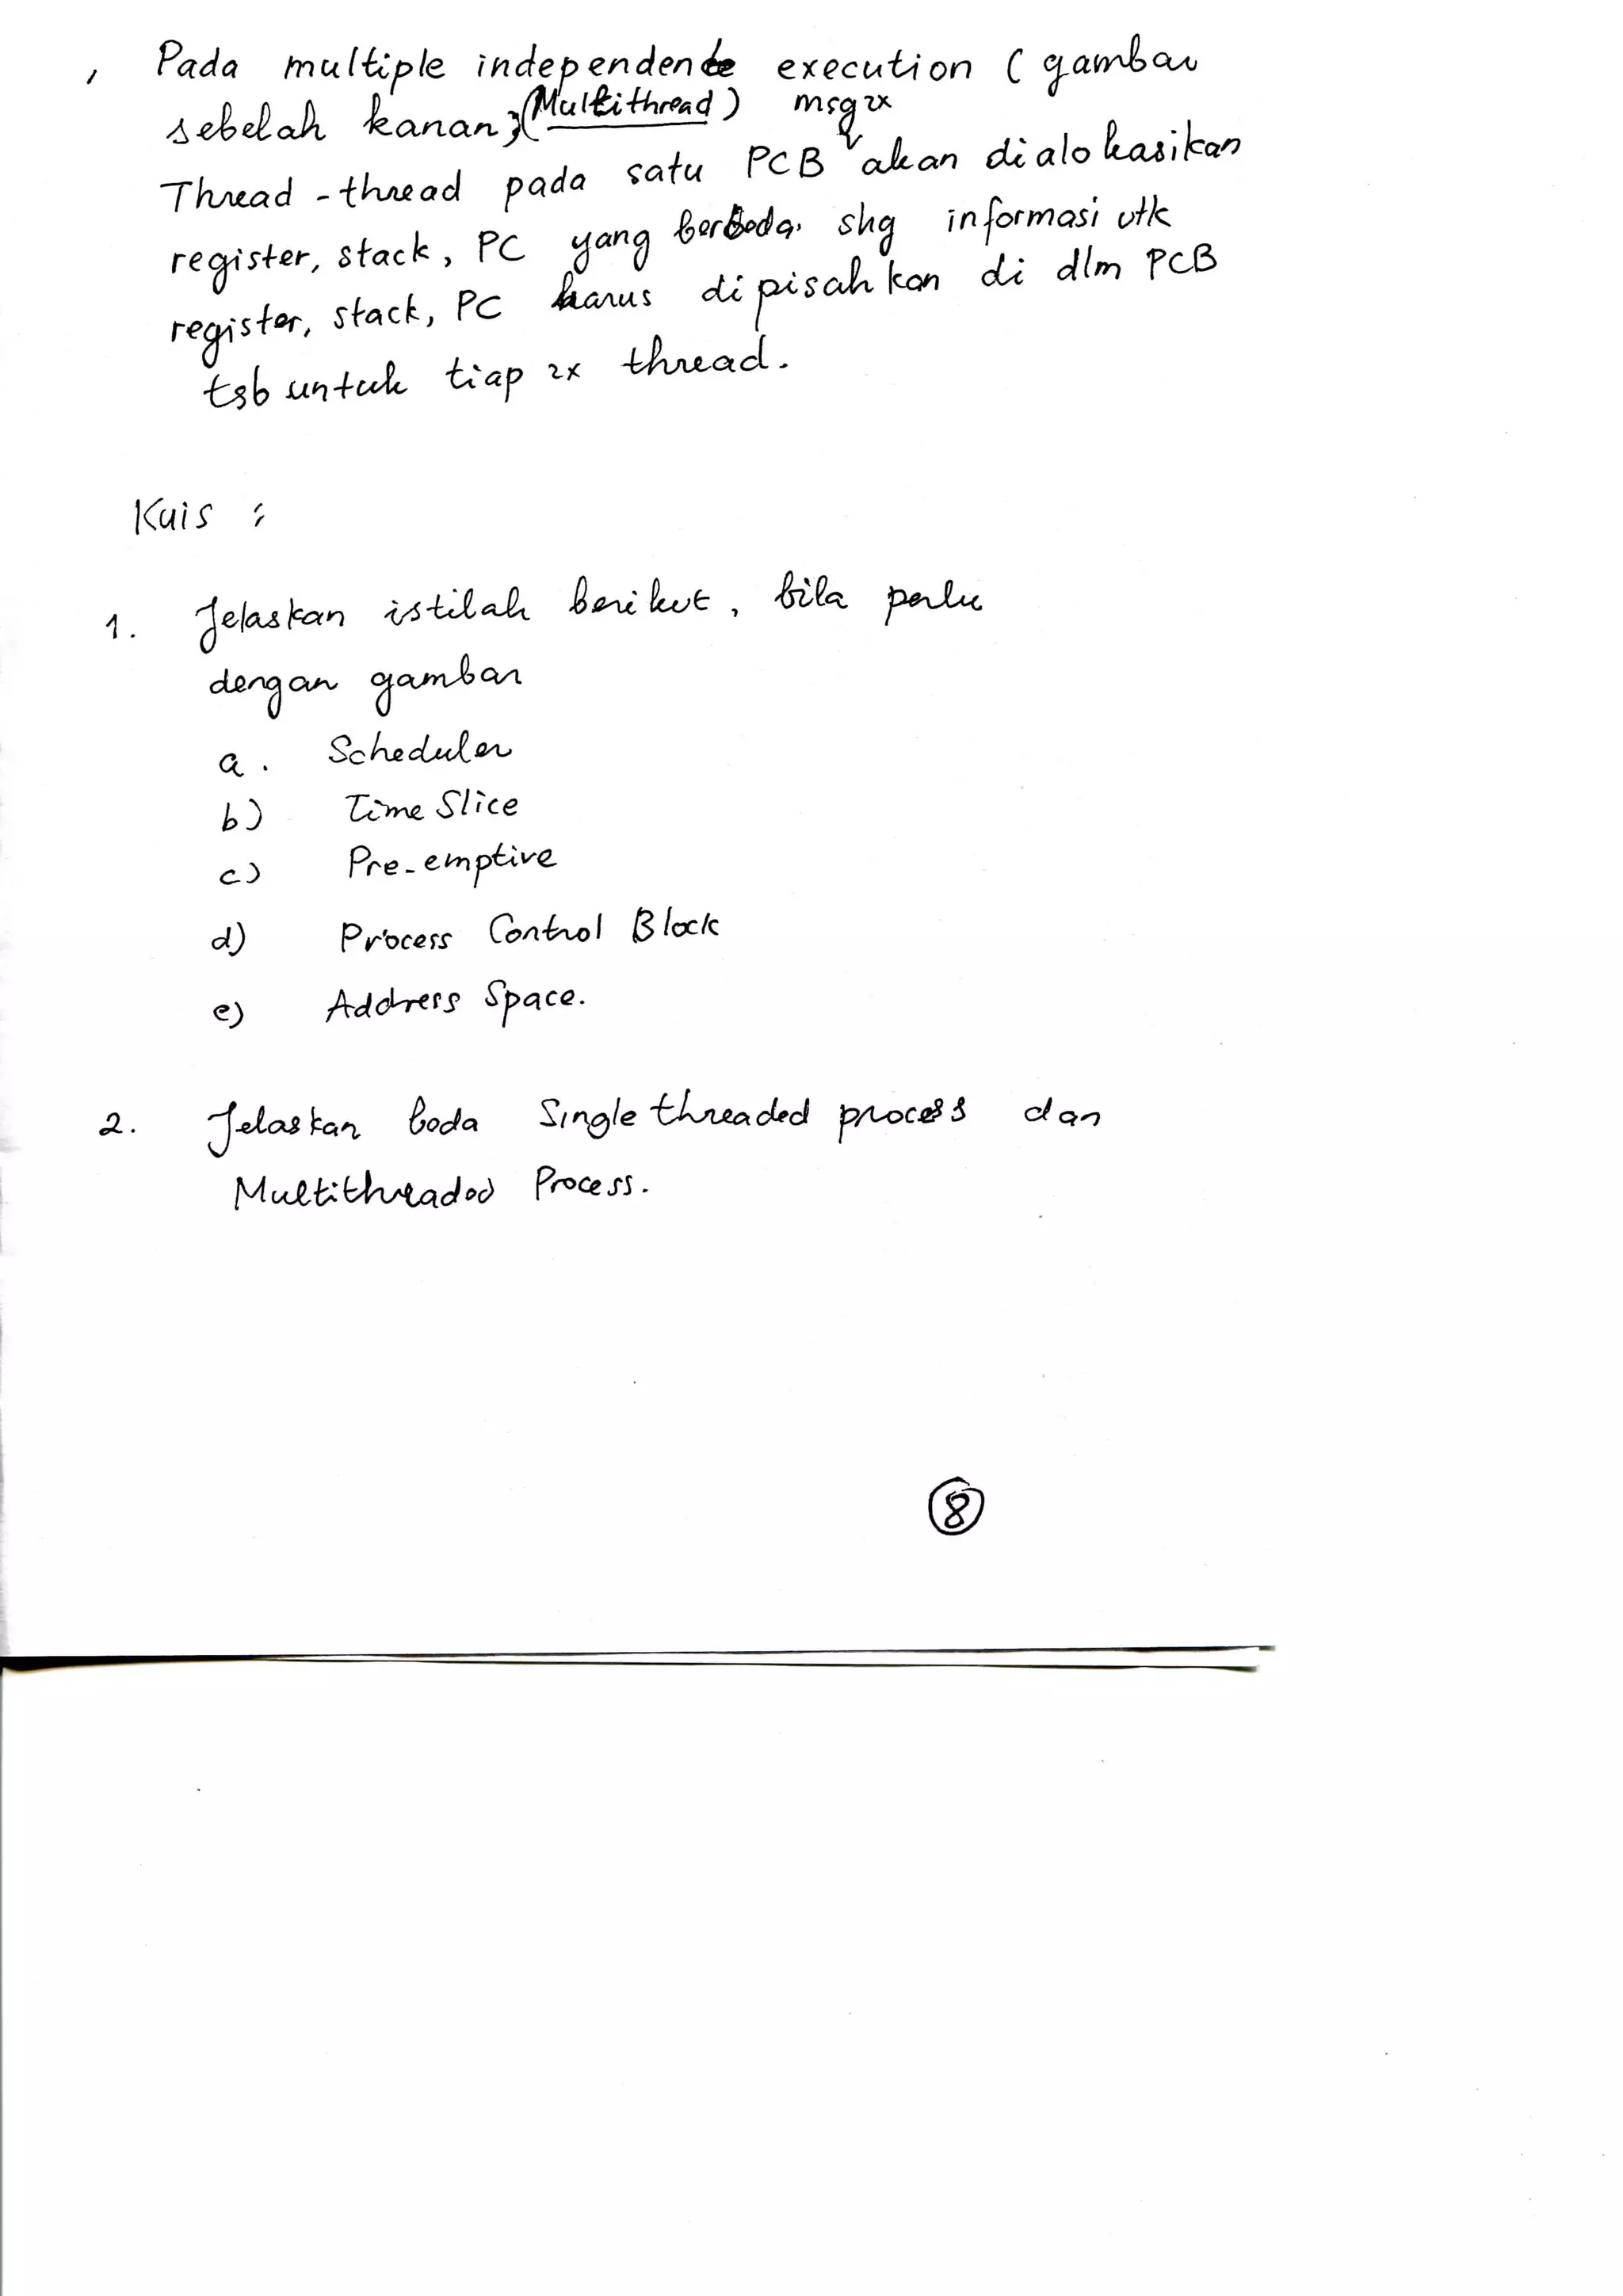 , Pada multiple independente execution ( gambar
sebelah kanan, (Multithread) msg2x
Thread - thread pada satu PCB akan dialokasikan
register, stack, PC yang berbeda, shg informasi utk
register, stack, PC harus dipisahkan di dlm PCB
tsb untuk tiap 2x thread.
Kuis :
1. Jelaskan istilah berikut, bila perlu
dengan gambar
a. Scheduler
b) Time Slice
c) Pre-emptive
d) Process Control Block
e) Address Space.
2. Jelaskan beda Single threaded process dan
Multithreaded Process.
8